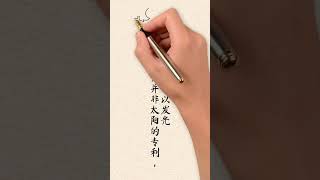 以发光
并非太阳的专利，